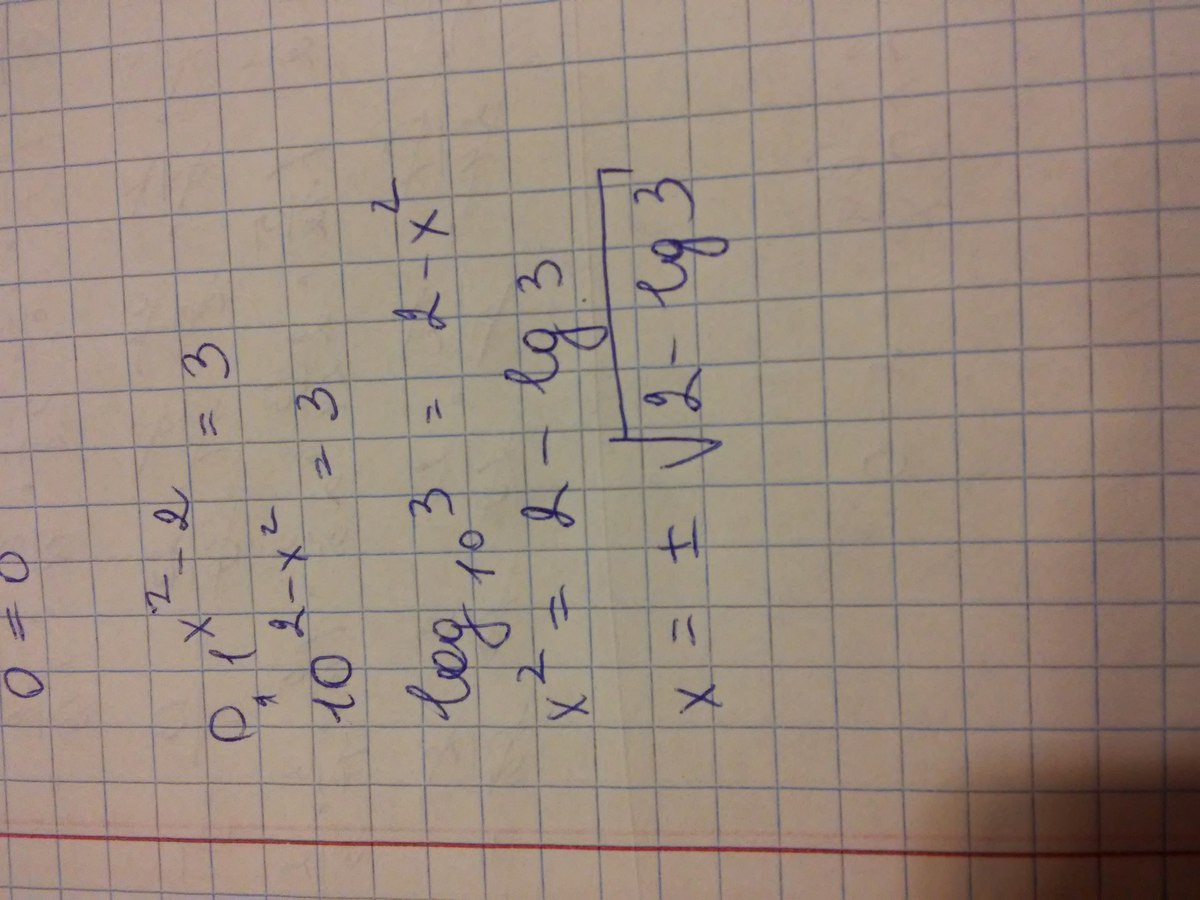 0 = 0
0,1^{x^2-2} = 3
10^{2-x^2} = 3
log_{10} 3 = 2-x^2
x^2 = 2 - lg 3
x = ± √(2 - lg 3)